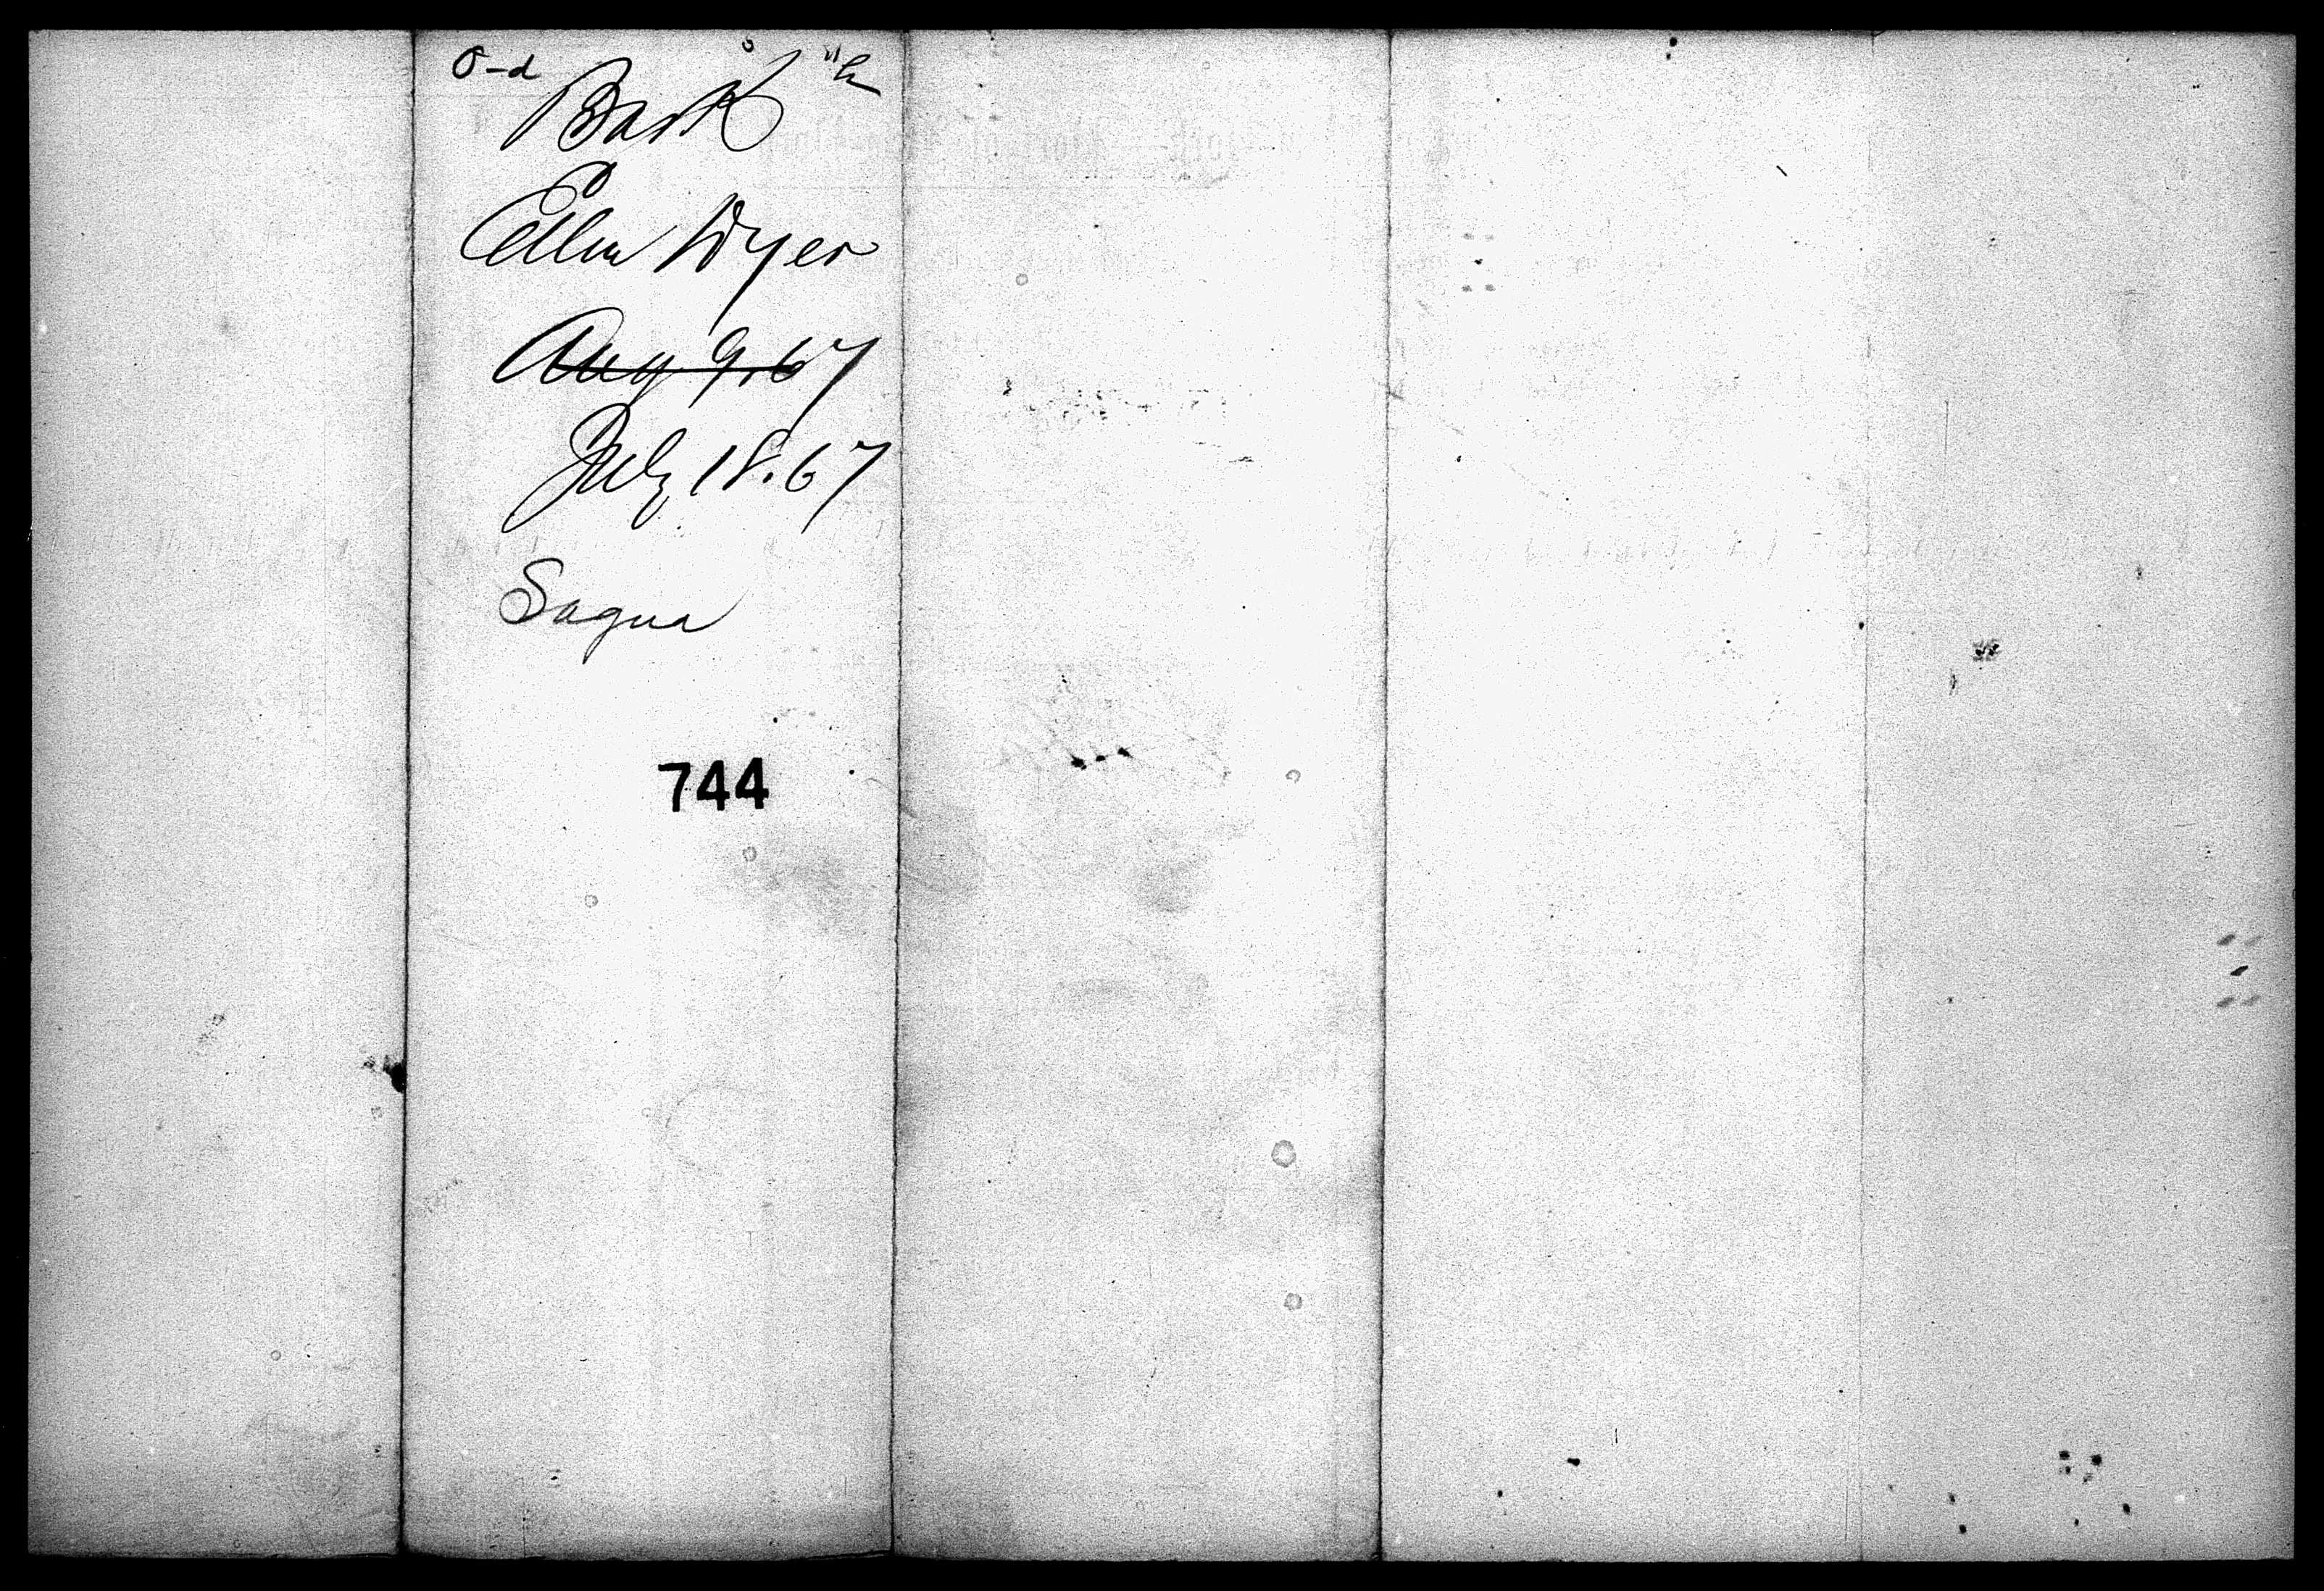 Bark
Ellen Dyer
Aug 9.67
July 18.67
Sagua
744